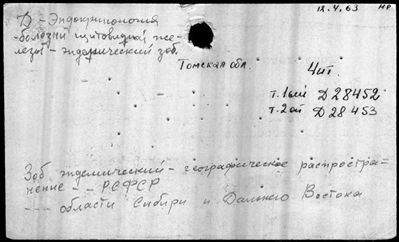 12.4.63 нр
D - Эндокринология
-болезни щитовидной же-
лезы - эндемический зоб.
Томская обл. 4ит.
т.1ый D 28452
т.2ой D 28 453
Зоб эндемический - географическое распростра-
нение - - РСФСР
--- области Сибири и Дальнего Востока